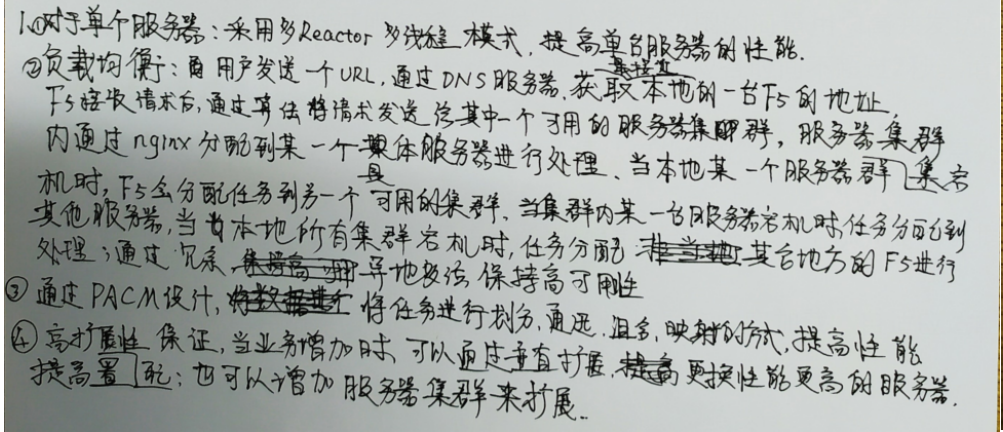 1.①对于单个服务器：采用多Reactor 多线程 模式，提高单台服务器的性能.
②负载均衡：用户发送一个URL，通过DNS服务器，获取本地的一台F5的地址，
F5接收请求后，通过算法将请求发送给其中一个可用的服务器集群，服务器集群
内通过nginx分配到某一个具体服务器进行处理、当本地某一个服务器集群宕
机时，F5会分配任务到另一个可用的集群，当集群内某一台服务器宕机时，任务分配到
其他服务器，当本地所有集群宕机时，任务分配 其它地方的F5进行
处理；通过冗余 异地 保持高可用性
③通过PACM设计，将任务进行划分，通迅，组合，映射的方式，提高性能
④高扩展性 保证，当业务增加时，可以通过垂直扩展，更换性能更高的服务器.
提高配置；也可以增加服务器集群来扩展..